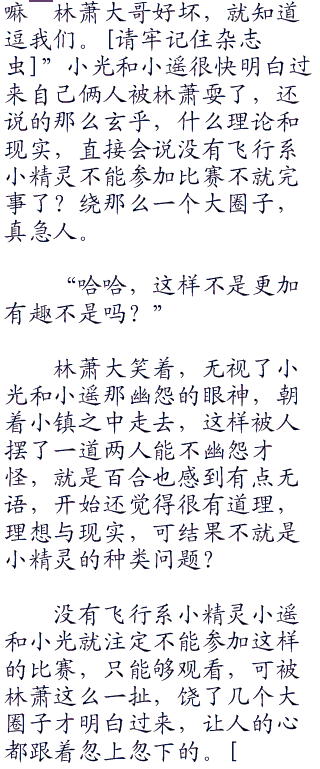 嘛 林萧大哥好坏，就知道
逗我们。[请牢记住杂志
虫]”小光和小遥很快明白过
来自己俩人被林萧耍了，还
说的那么玄乎，什么理论和
现实，直接会说没有飞行系
小精灵不能参加比赛不就完
事了？绕那么一个大圈子，
真急人。
“哈哈，这样不是更加
有趣不是吗？”
林萧大笑着，无视了小
光和小遥那幽怨的眼神，朝
着小镇之中走去，这样被人
摆了一道两人能不幽怨才
怪，就是百合也感到有点无
语，开始还觉得很有道理，
理想与现实，可结果不就是
小精灵的种类问题？
没有飞行系小精灵小遥
和小光就注定不能参加这样
的比赛，只能够观看，可被
林萧这么一扯，饶了几个大
圈子才明白过来，让人的心
都跟着忽上忽下的。[